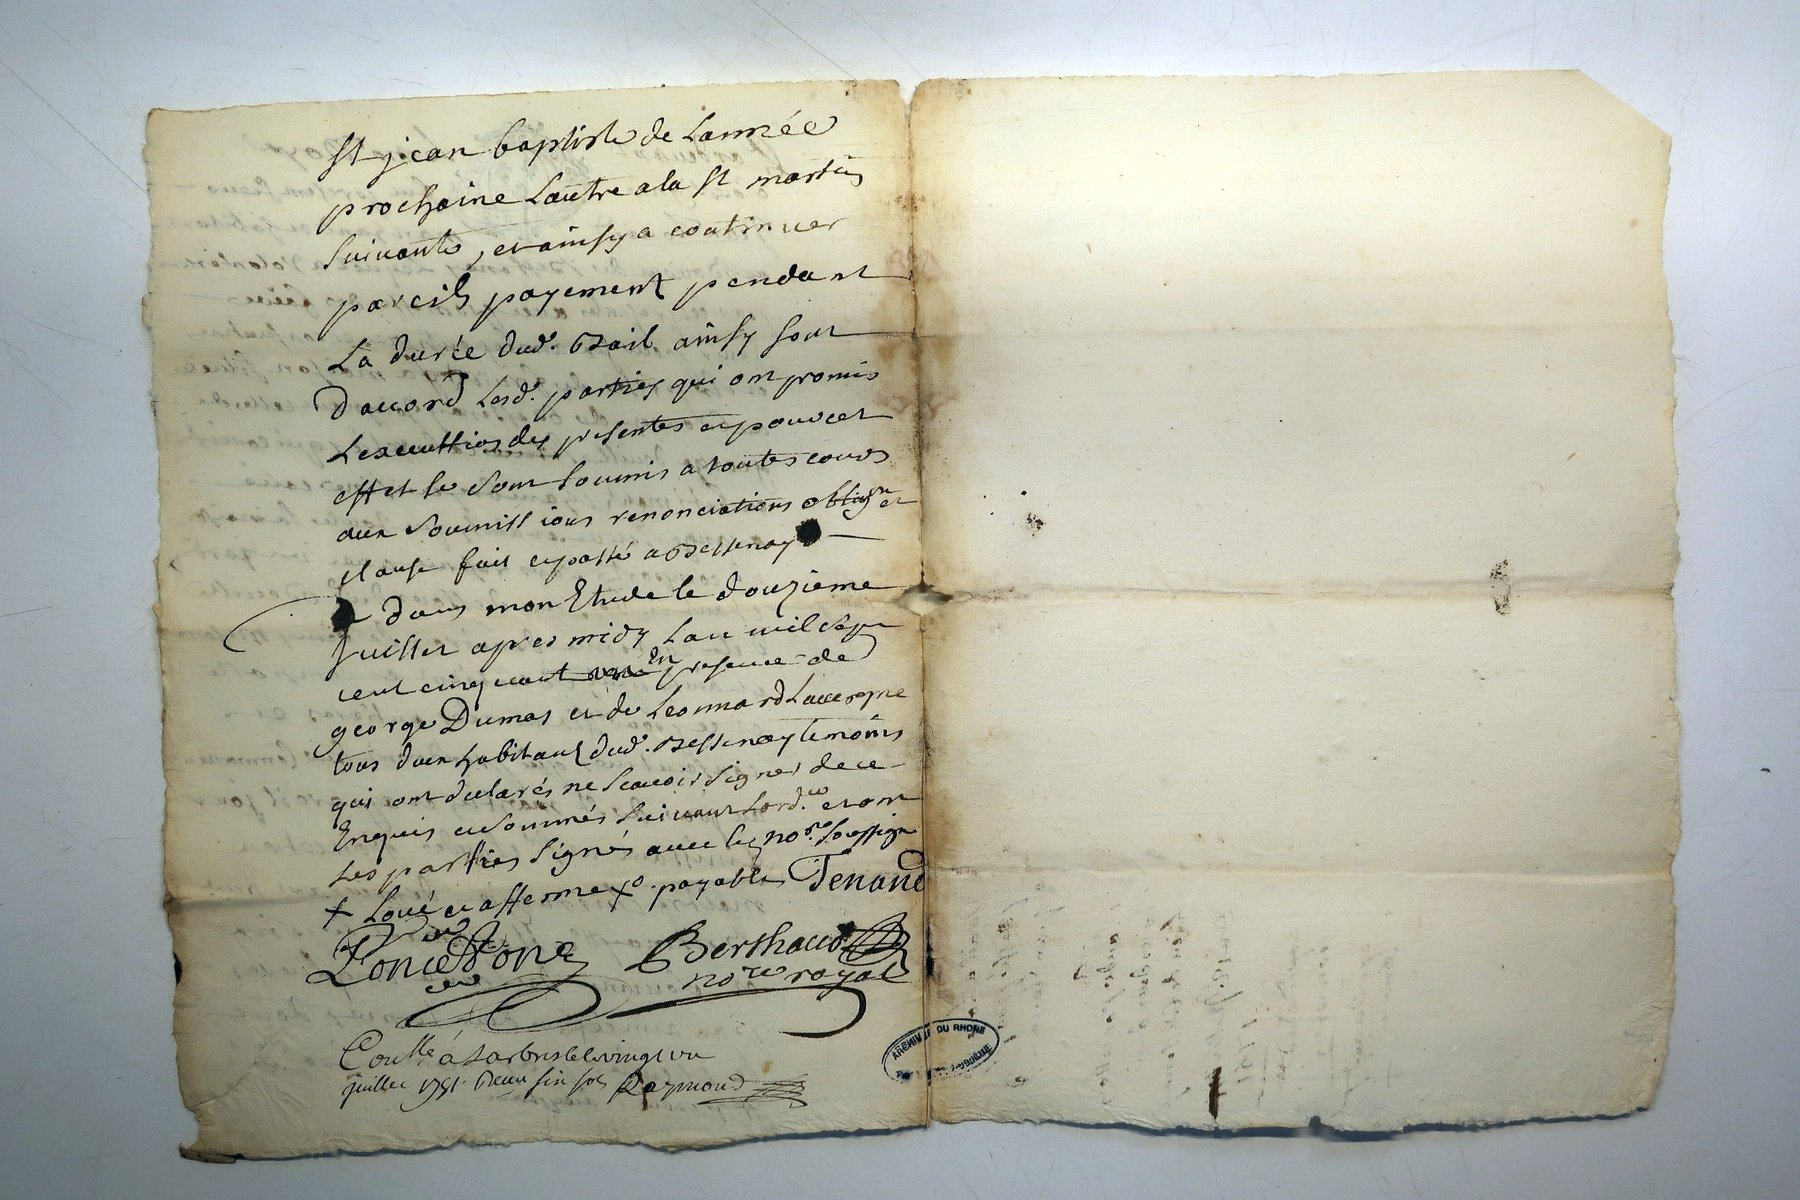 St jean baptiste de Lannée
prochaine Lautre a la St martin
Suivante, et ainsy a continuer
pareils payement pendant
La durée dud. Bail ainsy sont
Daccord Lesd. parties qui ont promis
Lexecuttion des presentes et pour cet
effet se sont soumis a toutes cours
aux soumissions renonciations obligon et
clause fait et passé a Bessenay
Dans mon Etude le douzieme
Juillet apres midy Lan mil sept
cent cinquant En presence de
george Dumas et de Leonnard Lavergne
tous deux habitans dud. Bessenay temoins
qui ont declarés ne scavoir signer de ce
Enquis et sommés suivant Lord.ce et ont
Les parties signés avec le nore. soussigné
+ Loué et afferme xo. payables Tenand
Berthaud
nore royal
Conllé a Larbresle le vingt un
juillet 1751. Raymond
ARCHIVES DU RHONE